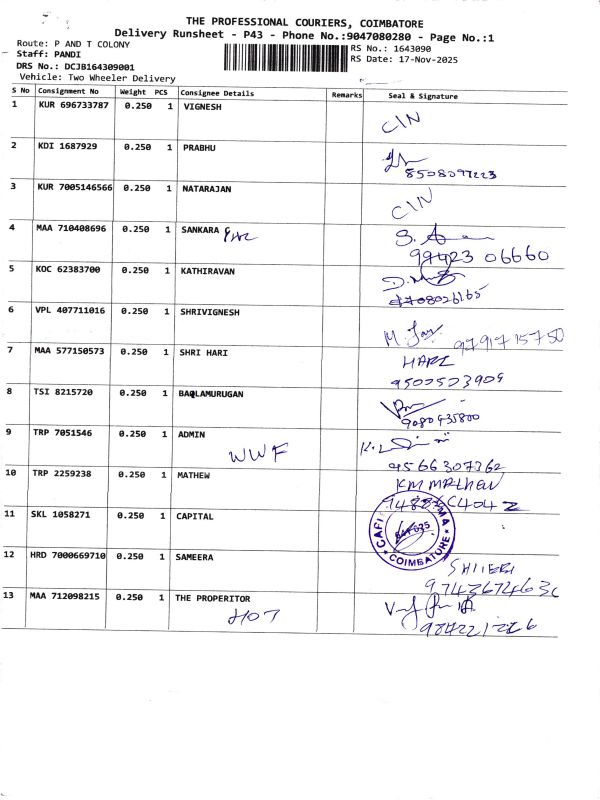 THE PROFESSIONAL COURIERS, COIMBATORE
Delivery Runsheet - P43 - Phone No.:9047080280 - Page No.:1
Route: P AND T COLONY
RS No.: 1643090
Staff: PANDI
RS Date: 17-Nov-2025
DRS No.: DCJB164309001
Vehicle: Two Wheeler Delivery
S No Consignment No Weight PCS Consignee Details Remarks Seal & Signature
1 KUR 696733787 0.250 1 VIGNESH
CIN
2 KDI 1687929 0.250 1 PRABHU
8508097223
3 KUR 7005146566 0.250 1 NATARAJAN
CIN
4 MAA 710408696 0.250 1 SANKARA
99423 06660
5 KOC 62383700 0.250 1 KATHIRAVAN
6 VPL 407711016 0.250 1 SHRIVIGNESH
9791715750
7 MAA 577150573 1 0.250 SHRI HARI
HARI
9500523909
8 TSI 8215720 0.250 1 BAQLAMURUGAN
9080435800
9 TRP 7051546 0.250 1 ADMIN
WWF
9566307362
10 TRP 2259238 0.250 1 MATHEW
KM MATHEW
11 SKL 1058271 0.250 1 CAPITAL
COIMBATORE
12 HRD 7000669710 0.250 1 SAMEERA
13 MAA 712098215 0.250 1 THE PROPERITOR
HOT